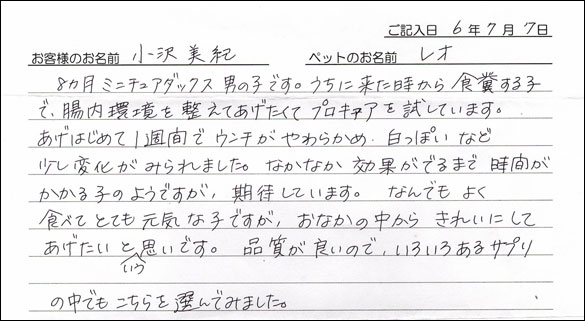 ご記入日 6年7月7日
お客様のお名前 小沢美紀 ペットのお名前 レオ
8カ月ミニチュアダックス男の子です。うちに来た時から食糞する子
で、腸内環境を整えてあげたくてプロキュアを試しています。
あげはじめて1週間でウンチがやわらかめ、白っぽいなど
少し変化がみられました。なかなか効果がでるまで時間が
かかる子のようですが、期待しています。なんでもよく
食べてとても元気な子ですが、おなかの中からきれいにして
あげたいという思いです。品質が良いので、いろいろあるサプリ
の中でもこちらを選んでみました。